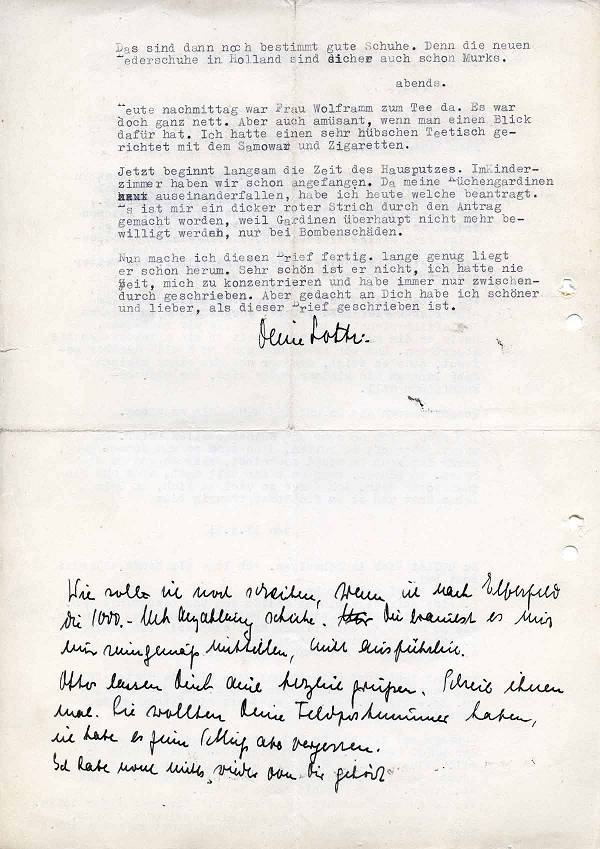 Das sind dann noch bestimmt gute Schuhe. Denn die neuen
Lederschuhe in Holland sind sicher auch schon Murks.
abends.
Heute nachmittag war Frau Wolframm zum Tee da. Es war
doch ganz nett. Aber auch amüsant, wenn man einen Blick
dafür hat. Ich hatte einen sehr hübschen Teetisch ge-
richtet mit dem Samowar und Zigaretten.
Jetzt beginnt langsam die Zeit des Hausputzes. ImKinder-
zimmer haben wir schon angefangen. Da meine Küchengardinen
auseinanderfallen, habe ich heute welche beantragt.
Es ist mir ein dicker roter Strich durch den Antrag
gemacht worden, weil Gardinen überhaupt nicht mehr be-
willigt werden, nur bei Bombenschäden.
Nun mache ich diesen Brief fertig. lange genug liegt
er schon herum. Sehr schön ist er nicht, ich hatte nie
Zeit, mich zu konzentrieren und habe immer nur zwischen-
durch geschrieben. Aber gedacht an Dich habe ich schöner
und lieber, als dieser Brief geschrieben ist.
Deine Lotti.
Wie soll ich noch schreiben, wenn ich nach Elberfeld
die 1000.- Mk Anzahlung schicke. Du brauchst es mir
nur sinngemäß mitteilen, nicht ausführlich.
Ottos lassen Dich herzlich grüßen. Schreib ihnen
mal. Sie wollten Deine Feldpostnummer haben,
ich habe es zum Schluß aber vergessen.
Ich habe noch nichts wieder von Dir gehört